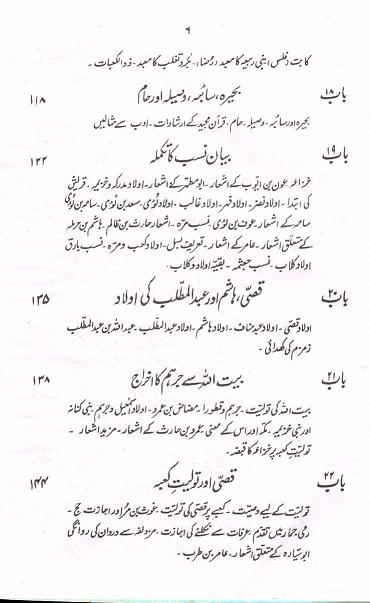 ۶
کا بت فلس، بنی ربیعہ کا معبد رُضاء، بکر و تغلب کا معبد۔ ذو الکعبات۔
باب ۱۸ بحیرہ، سائبہ، وصیلہ اور حام ۱۱۸
بحیرہ اور سائبہ۔ وصیلہ۔ حام۔ قرآن مجید کے ارشادات۔ ادب سے مثالیں
باب ۱۹ بیان نسب کا تکملہ ۱۲۲
خزاعہ۔ عون بن ایوب کے اشعار۔ ابو مطہر کے اشعار۔ اولاد مدرکہ و خزیمہ۔ قریش
کی ابتدا۔ اولاد نضر۔ اولاد فہر۔ اولاد غالب۔ اولاد لوی۔ سعد بن لوی۔ سامہ بن لوی
سامہ کے اشعار۔ عوف بن لوی۔ نسب مرہ۔ اشعار حارث بن ظالم۔ ہاشم بن حرملہ
کے متعلق اشعار۔ عامر کے اشعار۔ تعریف بسل۔ اولاد کعب و مرہ۔ نسب بارق
اولاد کلاب۔ نسب جعثمہ۔ بقیہ اولاد کلاب۔
باب ۲۰ قصی، ہاشم اور عبد المطلب کی اولاد ۱۳۵
اولاد قصی۔ اولاد عبد مناف۔ اولاد ہاشم۔ اولاد عبد المطلب۔ عبد اللہ بن عبد المطلب
زمزم کی کھدائی۔
باب ۲۱ بیت اللہ سے جرہم کا اخراج ۱۳۸
بیت اللہ کی تولیت۔ جرہم و قطورا۔ مضاض بن عمرو۔ اولاد اسمٰعیل و جرہم بنی کنانہ
اور بنی خزیمہ۔ مکہ اور اس کے معنی۔ عمرو بن حارث کے اشعار۔ مزید اشعار۔
تولیت کعبہ پر خزاعہ کا قبضہ۔
باب ۲۲ قصی اور تولیتِ کعبہ ۱۴۴
تولیت کے لیے وصیت۔ کعبے پر قصی کی تولیت۔ غوث بن مر اور اجازت حج۔
رمی جمار میں تقدم۔ عرفات سے نکلنے کی اجازت۔ مزدلفہ سے عدوان کی روانگی
ابو سیارہ کے متعلق اشعار۔ عامر بن ظرب۔